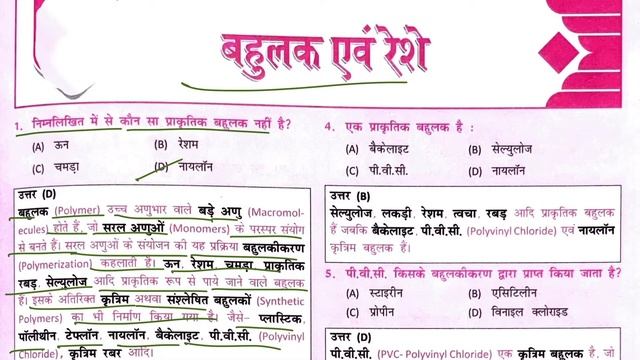 बहुलक एवं रेशे
1. निम्नलिखित में से कौन सा प्राकृतिक बहुलक नहीं है?
(A) ऊन (B) रेशम
(C) चमड़ा (D) नायलॉन
उत्तर (D)
बहुलक (Polymer) उच्च अणुभार वाले बड़े अणु (Macromol-
ecules) होते हैं, जो सरल अणुओं (Monomers) के परस्पर संयोग
से बनते हैं। सरल अणुओं के संयोजन की यह प्रक्रिया बहुलकीकरण
(Polymerization) कहलाती है। ऊन, रेशम, चमड़ा, प्राकृतिक
रबड़, सेल्युलोज आदि प्राकृतिक रूप से पाये जाने वाले बहुलक
हैं। इसके अतिरिक्त कृत्रिम अथवा संश्लेषित बहुलकों (Synthetic
Polymers) का भी निर्माण किया गया है। जैसे- प्लास्टिक,
पॉलीथीन, टेफ्लॉन, नायलॉन, बैकेलाइट, पी.वी.सी. (Polyvinyl
Chloride), कृत्रिम रबर आदि।
4. एक प्राकृतिक बहुलक है :
(A) बैकेलाइट (B) सेल्युलोज
(C) पी.वी.सी. (D) नायलॉन
उत्तर (B)
सेल्युलोज, लकड़ी, रेशम, त्वचा, रबड़ आदि प्राकृतिक बहुलक
हैं जबकि बैकेलाइट, पी.वी.सी. (Polyvinyl Chloride) एवं नायलॉन
कृत्रिम बहुलक हैं।
5. पी.वी.सी. किसके बहुलकीकरण द्वारा प्राप्त किया जाता है?
(A) स्टाइरीन (B) एसिटिलीन
(C) प्रोपीन (D) विनाइल क्लोराइड
उत्तर (D)
पी.वी.सी. (PVC- Polyvinyl Chloride) एक कृत्रिम बहुलक है, जो